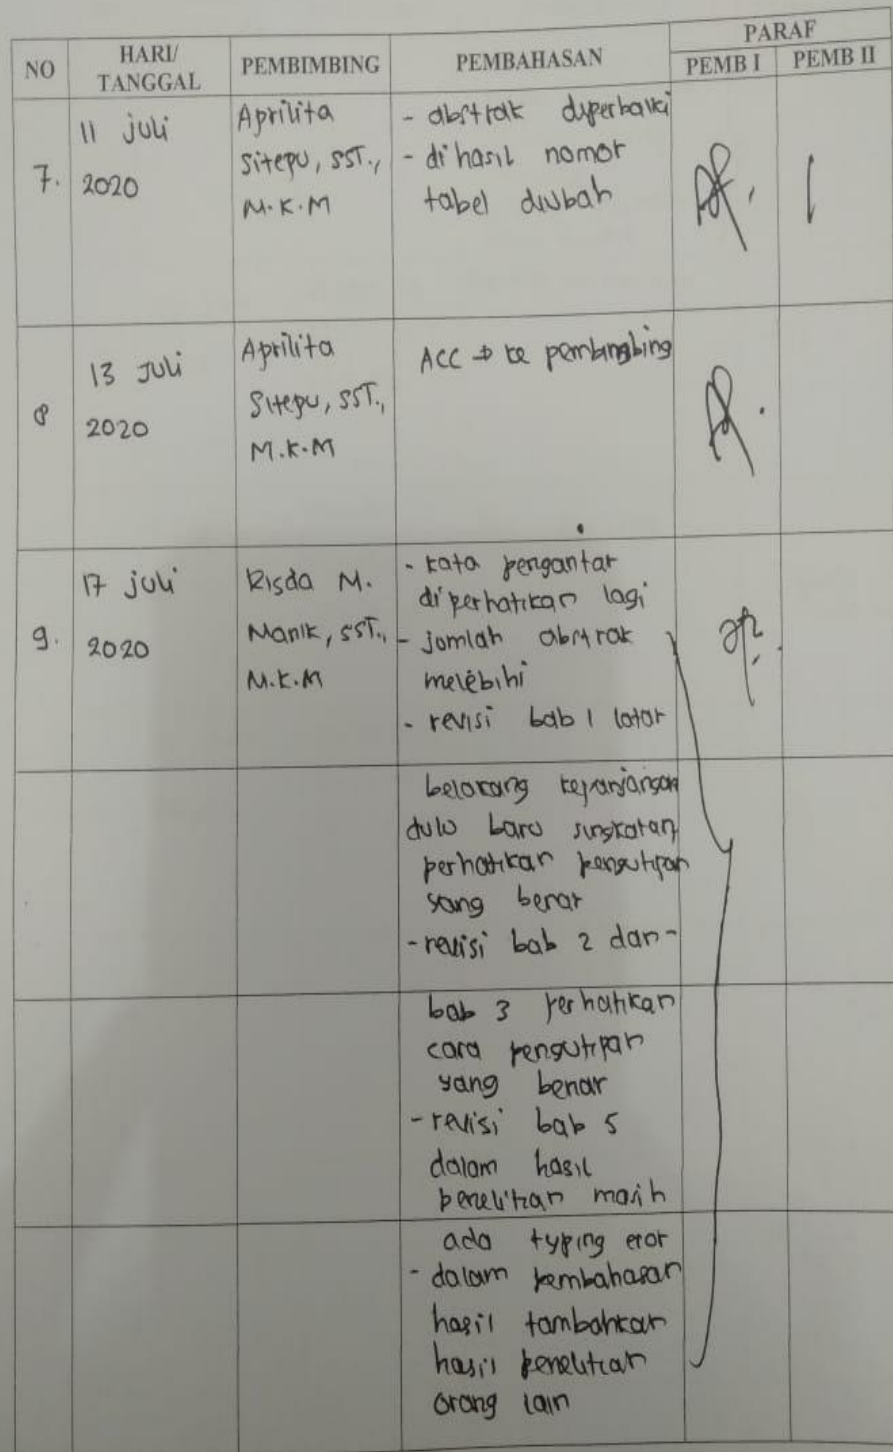 NO HARI/ TANGGAL PEMBIMBING PEMBAHASAN PARAF
PEMB I PEMB II
7.
11 juli
2020
Aprilita
Sitepu, SST.,
M.K.M
- abstrak diperbaiki
- di hasil nomor
tabel diubah
8
13 Juli
2020
Aprilita
Sitepu, SST.,
M.K.M
ACC → ke pembimbing
9.
17 juli
2020
Risda M.
Manik, SST.,
M.K.M
- kata pengantar
diperhatikan lagi
- jumlah abstrak
melebihi
- revisi bab 1 latar
belakang kepanjangan
dulu baru singkatan
perhatikan pengutipan
yang benar
- revisi bab 2 dan -
bab 3 perhatikan
cara pengutipan
yang benar
- revisi bab 5
dalam hasil
penelitian masih
ada typing eror
- dalam pembahasan
hasil tambahkan
hasil penelitian
orang lain